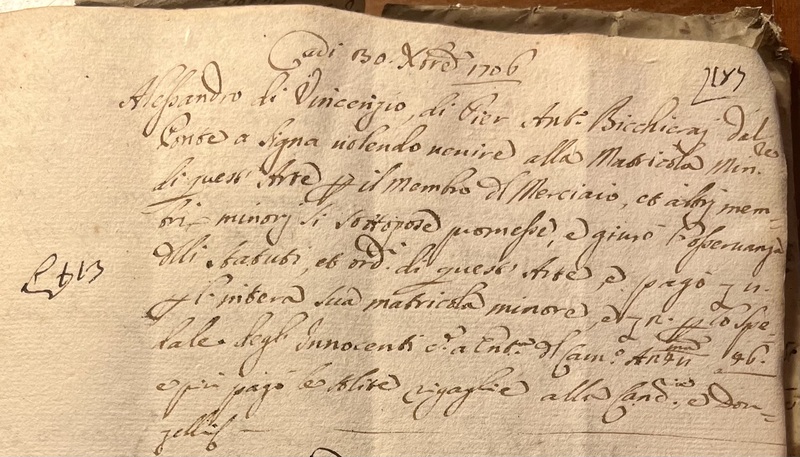 Adi 30. Xbre 1706
187
Alessandro di Vincenzio, di Pier Ant.º Bicchieraj del
Ponte a Signa volendo venire alla Matricola Min.re
di quest'Arte p il Membro dl Merciaio, et altrj mem-
bri minorj si sottopose promesse, e giurò l'osservanza
dlli statuti, et ord.i di quest'Arte, e pagò
p l'intera sua matricola minore, e p lo Spe-
dale degl'Innocenti c.º a Ent.ª dl Cam.º 46.
e più pagò le solite rigaglie alla Canc.ria e Don-
zellj
13